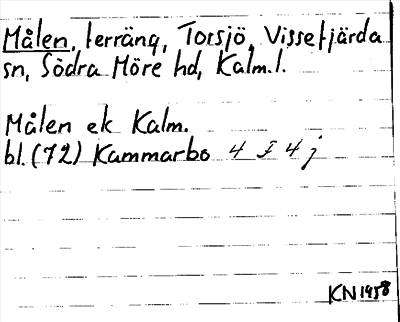 Målen, terräng, Torsjö, Vissefjärda
sn, Södra Möre hd, Kalm.l.
Målen ek Kalm.
bl.(72) Kammarbo 4 F 4 j
KN1958